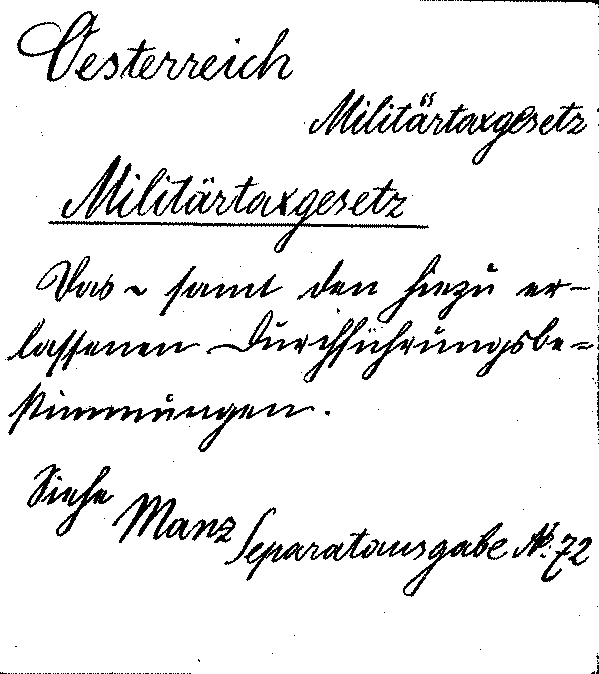 Oesterreich
Militärtaxgesetz
Militärtaxgesetz
Das ~ samt den hiezu er-
lassenen Durchführungsbe=
stimmungen.
Siehe Manz Separatausgabe No. 72